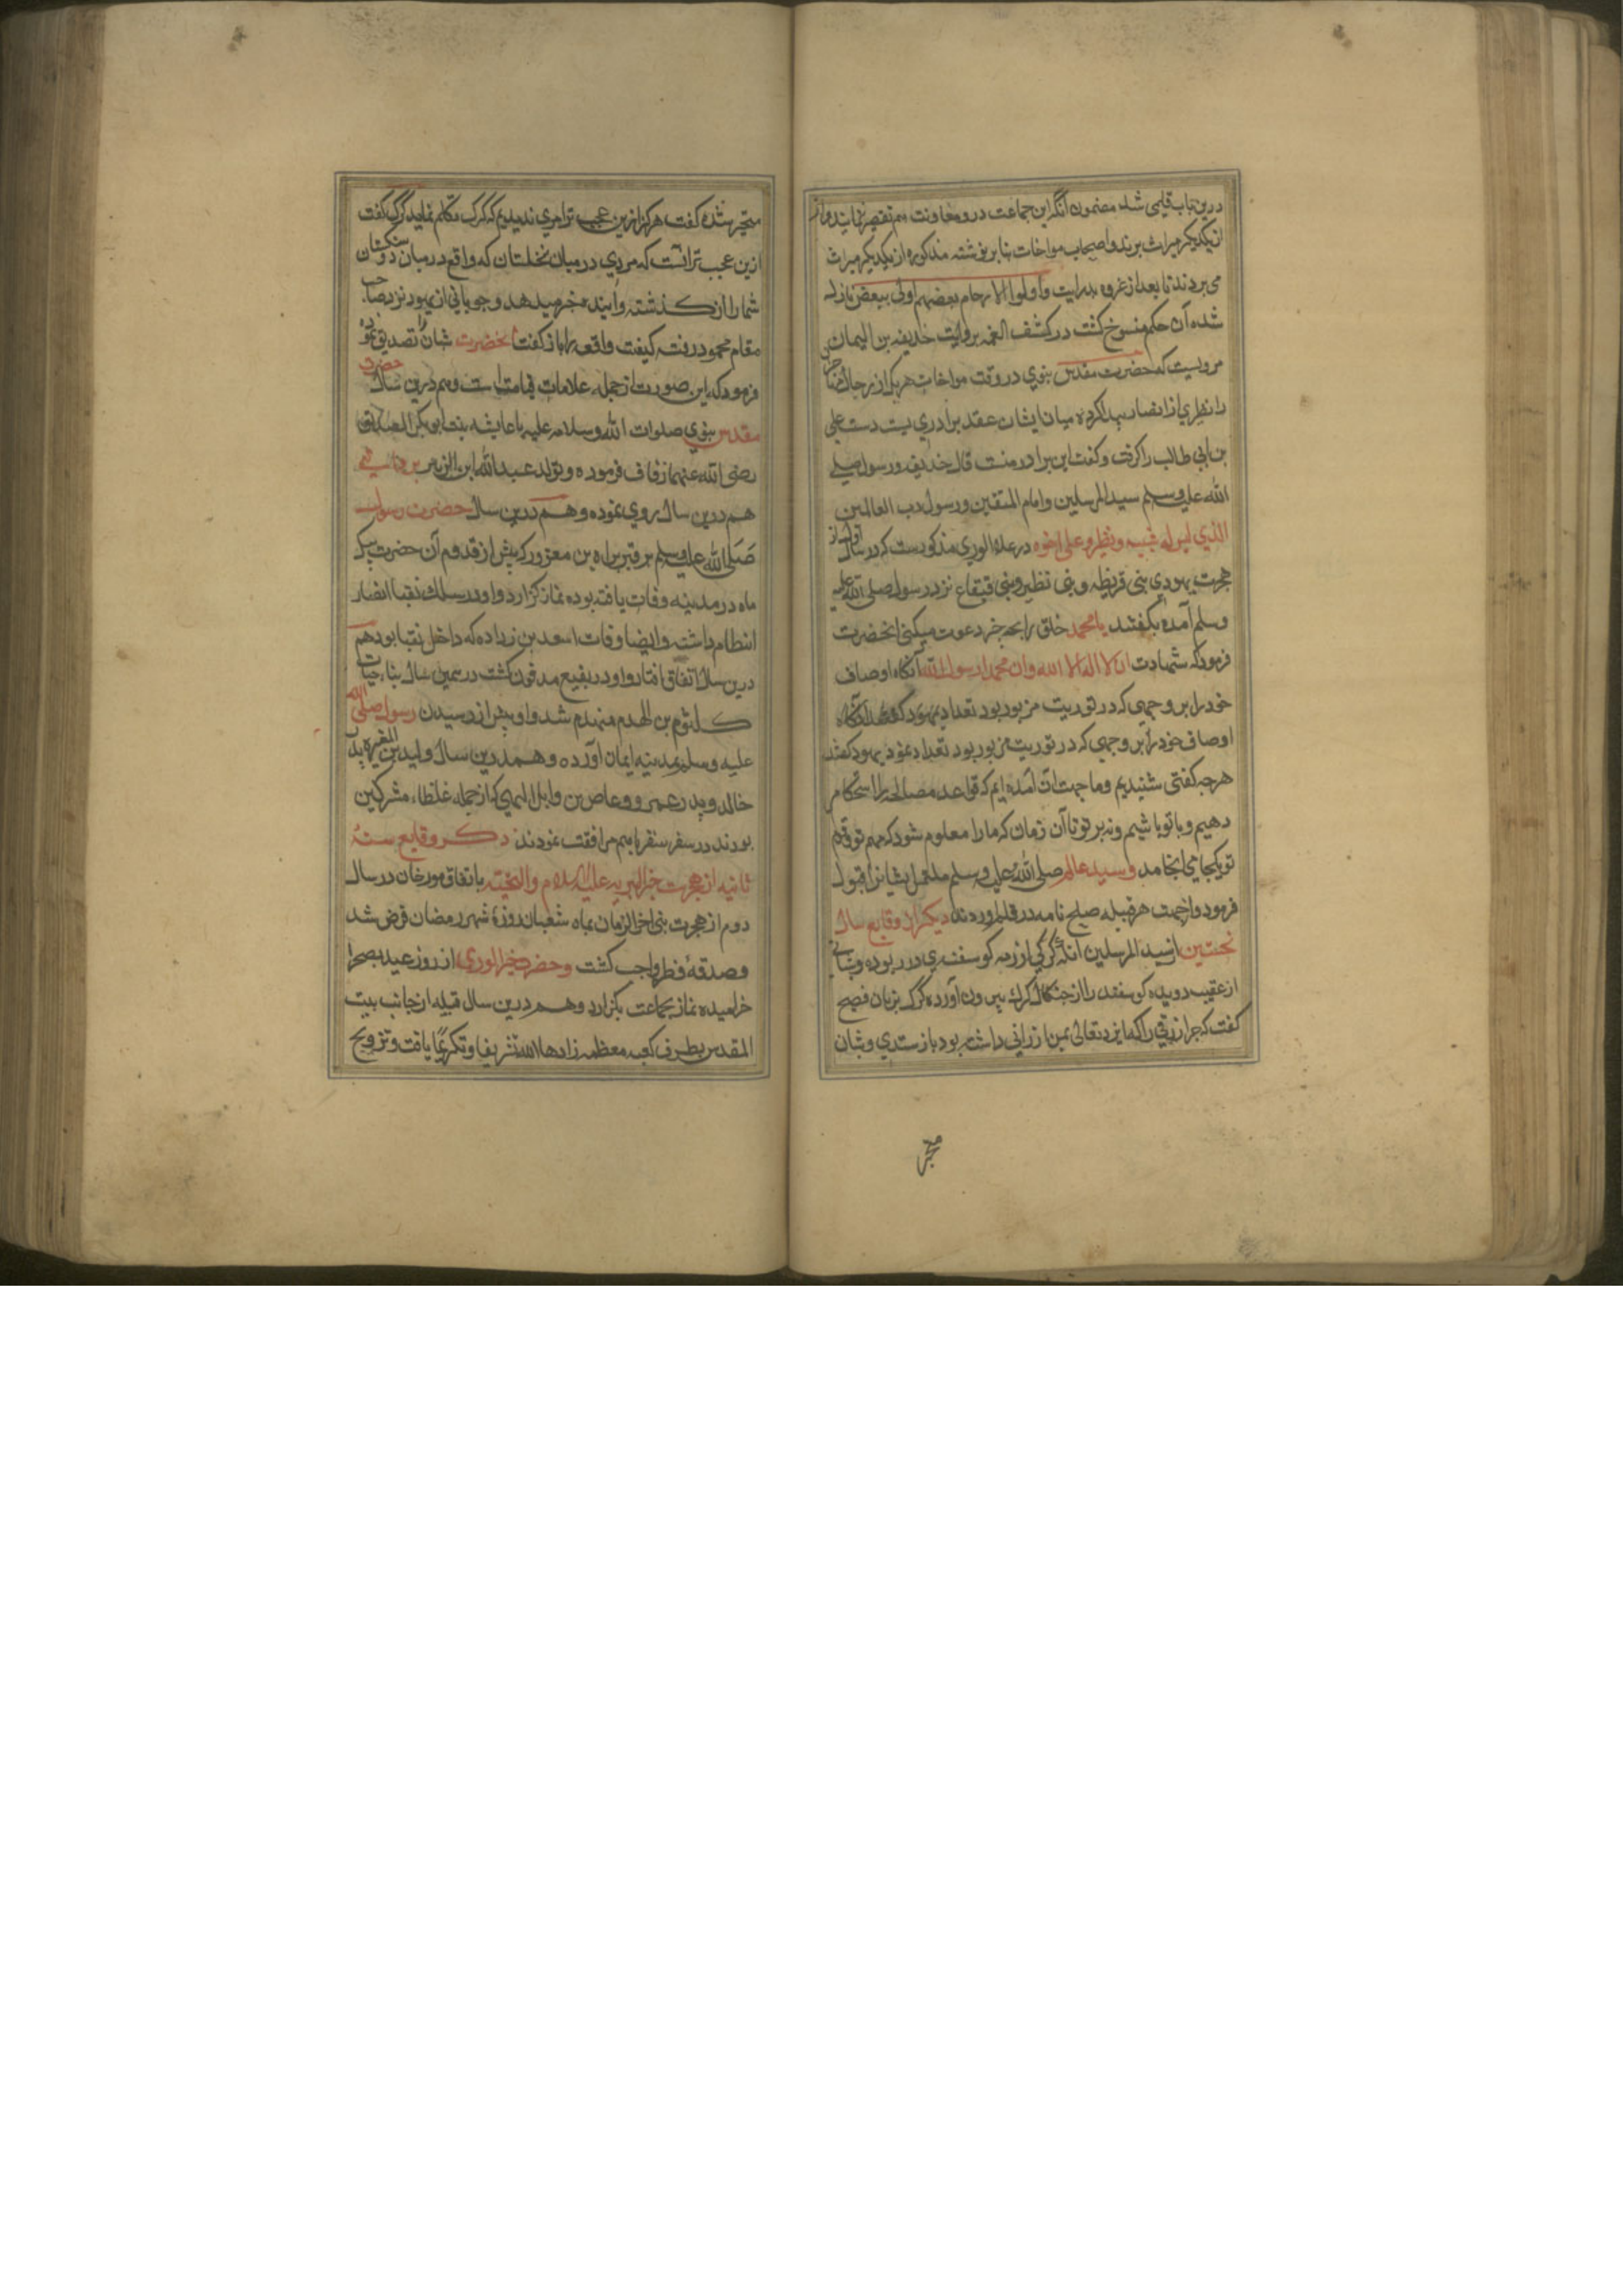 درین باب قلمی شد مضمون انکه این جماعت در ومعاونت هم تقصیر ننمایند واز
از یکدیکر میراث برند واصحاب مواخات بنا بر نوشته مذکوره از یکدیکر میراث
می بردند تا بعد از غزوه بدر ایت واولوا الارحام بعضهم اولی ببعض نازل
شده آن حکم منسوخ کشت در کشف الغمه بروایت حذیفه بن الیمان
مرویست که حضرت مقدس نبوی در وقت مواخات هر یک از رجال
را نظری از انصار پیدا کرده میان ایشان عقد برادری بست دست علی
بن ابی طالب را کرفت وکفت این برادر منست قال حذیفه ورسول صلی
الله علیه وسلم سید المرسلین وامام المتقین ورسول رب العالمین
الذی لیس له شبیه ونظیر وعلی اخوه در اعلام الوری مذکورست که در سال اول از
هجرت یهودی بنی قریظه وبنی نظیر وبنی قینقاع نزد رسول صلی الله علیه
وسلم آمده بکفتند یا محمد خلق را بچه خبر دعوت میکنی انحضرت
فرمود که شهادت ان لا اله الا الله وان محمدا رسول الله آنکاه اوصاف
خود را بر وجهی که در توریت مزبور بود تعداد یهود
اوصاف خود را بر وجهی که در توریت مزبور بود تعداد نمود یهود کفتند
هرچه کفتی شنیدیم وما جهت ان آمده ایم که قواعد مصالحه را استحکام
دهیم وبا تو باشیم ونه بر تو تا آن زمان که ما را معلوم شود که مهم تو وقوم
تو بکجا می انجامد وسید عالم صلی الله علیه وسلم ملتمس ایشانرا قبول
فرمود واز جهت هر قبیله صلح نامه در قلم اوردند دیکر از وقایع سال
نخستین از سید المرسلین انکه کرکی از رمه کوسفندی در ربوده وشبانی
از عقیب دویده کوسفند را از چنکال کرک بیرون آورده کرک بزبان فصیح
کفت که چرا رزقی را که ایزد تعالی بمن ارزانی داشته بود باز ستدی وشبان
متحیر
متحیر شده کفت هرکز ازین عجب تر امری ندیدیم که کرک تکلم نماید کرک کفت
ازین عجب تر انست که مردی در میان نخلستان که واقع در میان دو سنکستان
شما را از کذشته واینده خبر میدهد وچوبانی از یهود نزد صاحب
مقام محمود رفته کیفیت واقعه را باز کفت انحضرت شبان را تصدیق نموده
فرمود که این صورت از جمله علامات قیامتست وهم درین سال حضرت
مقدس نبوی صلوات الله وسلامه علیه با عایشه بنت ابو بکر الصدیق
رضی الله عنهما زفاف فرموده وتولد عبد الله ابن الزبیر
هم درین سال روی نموده وهم درین سال حضرت رسول
صلی الله علیه وسلم بر قبر براء بن معرور که پیش از قدوم آن حضرت بیک
ماه در مدینه وفات یافته بوده نماز کزارد واو در سلک نقبا انصار
انتظام داشته وایضا وفات اسعد بن زراده که داخل نقبا بود هم
درین سال اتفاق افتاد واو در بقیع مدفون کشت در همین سال بناء حیات
کلثوم بن الهدم منهدم شد واو پیش از رسیدن رسول صلی الله
علیه وسلم بمدینه ایمان آورده وهمدرین سال ولید بن المغیره پدر
خالد وپدر عمرو وعاص بن وایل السهمی که از جمله غلظاء مشرکین
بودند در سفر سقر با هم مرافقت نمودند ذکر وقایع سنه
ثانیه از هجرت خیر البریه علیه السلام والتحیته باتفاق مورخان در سال
دوم از هجرت نبی اخر الزمان بماه شعبان روزه شهر رمضان فرض شد
وصدقه فطر واجب کشت وحضرت خیر الوری از روز عید بصحرا
خرامیده نماز بجماعت بکزارد وهم درین سال قبله از جانب بیت
المقدس بطرف کعبه معظمه زادها الله تشریفا وتکریما یافت وتزویج